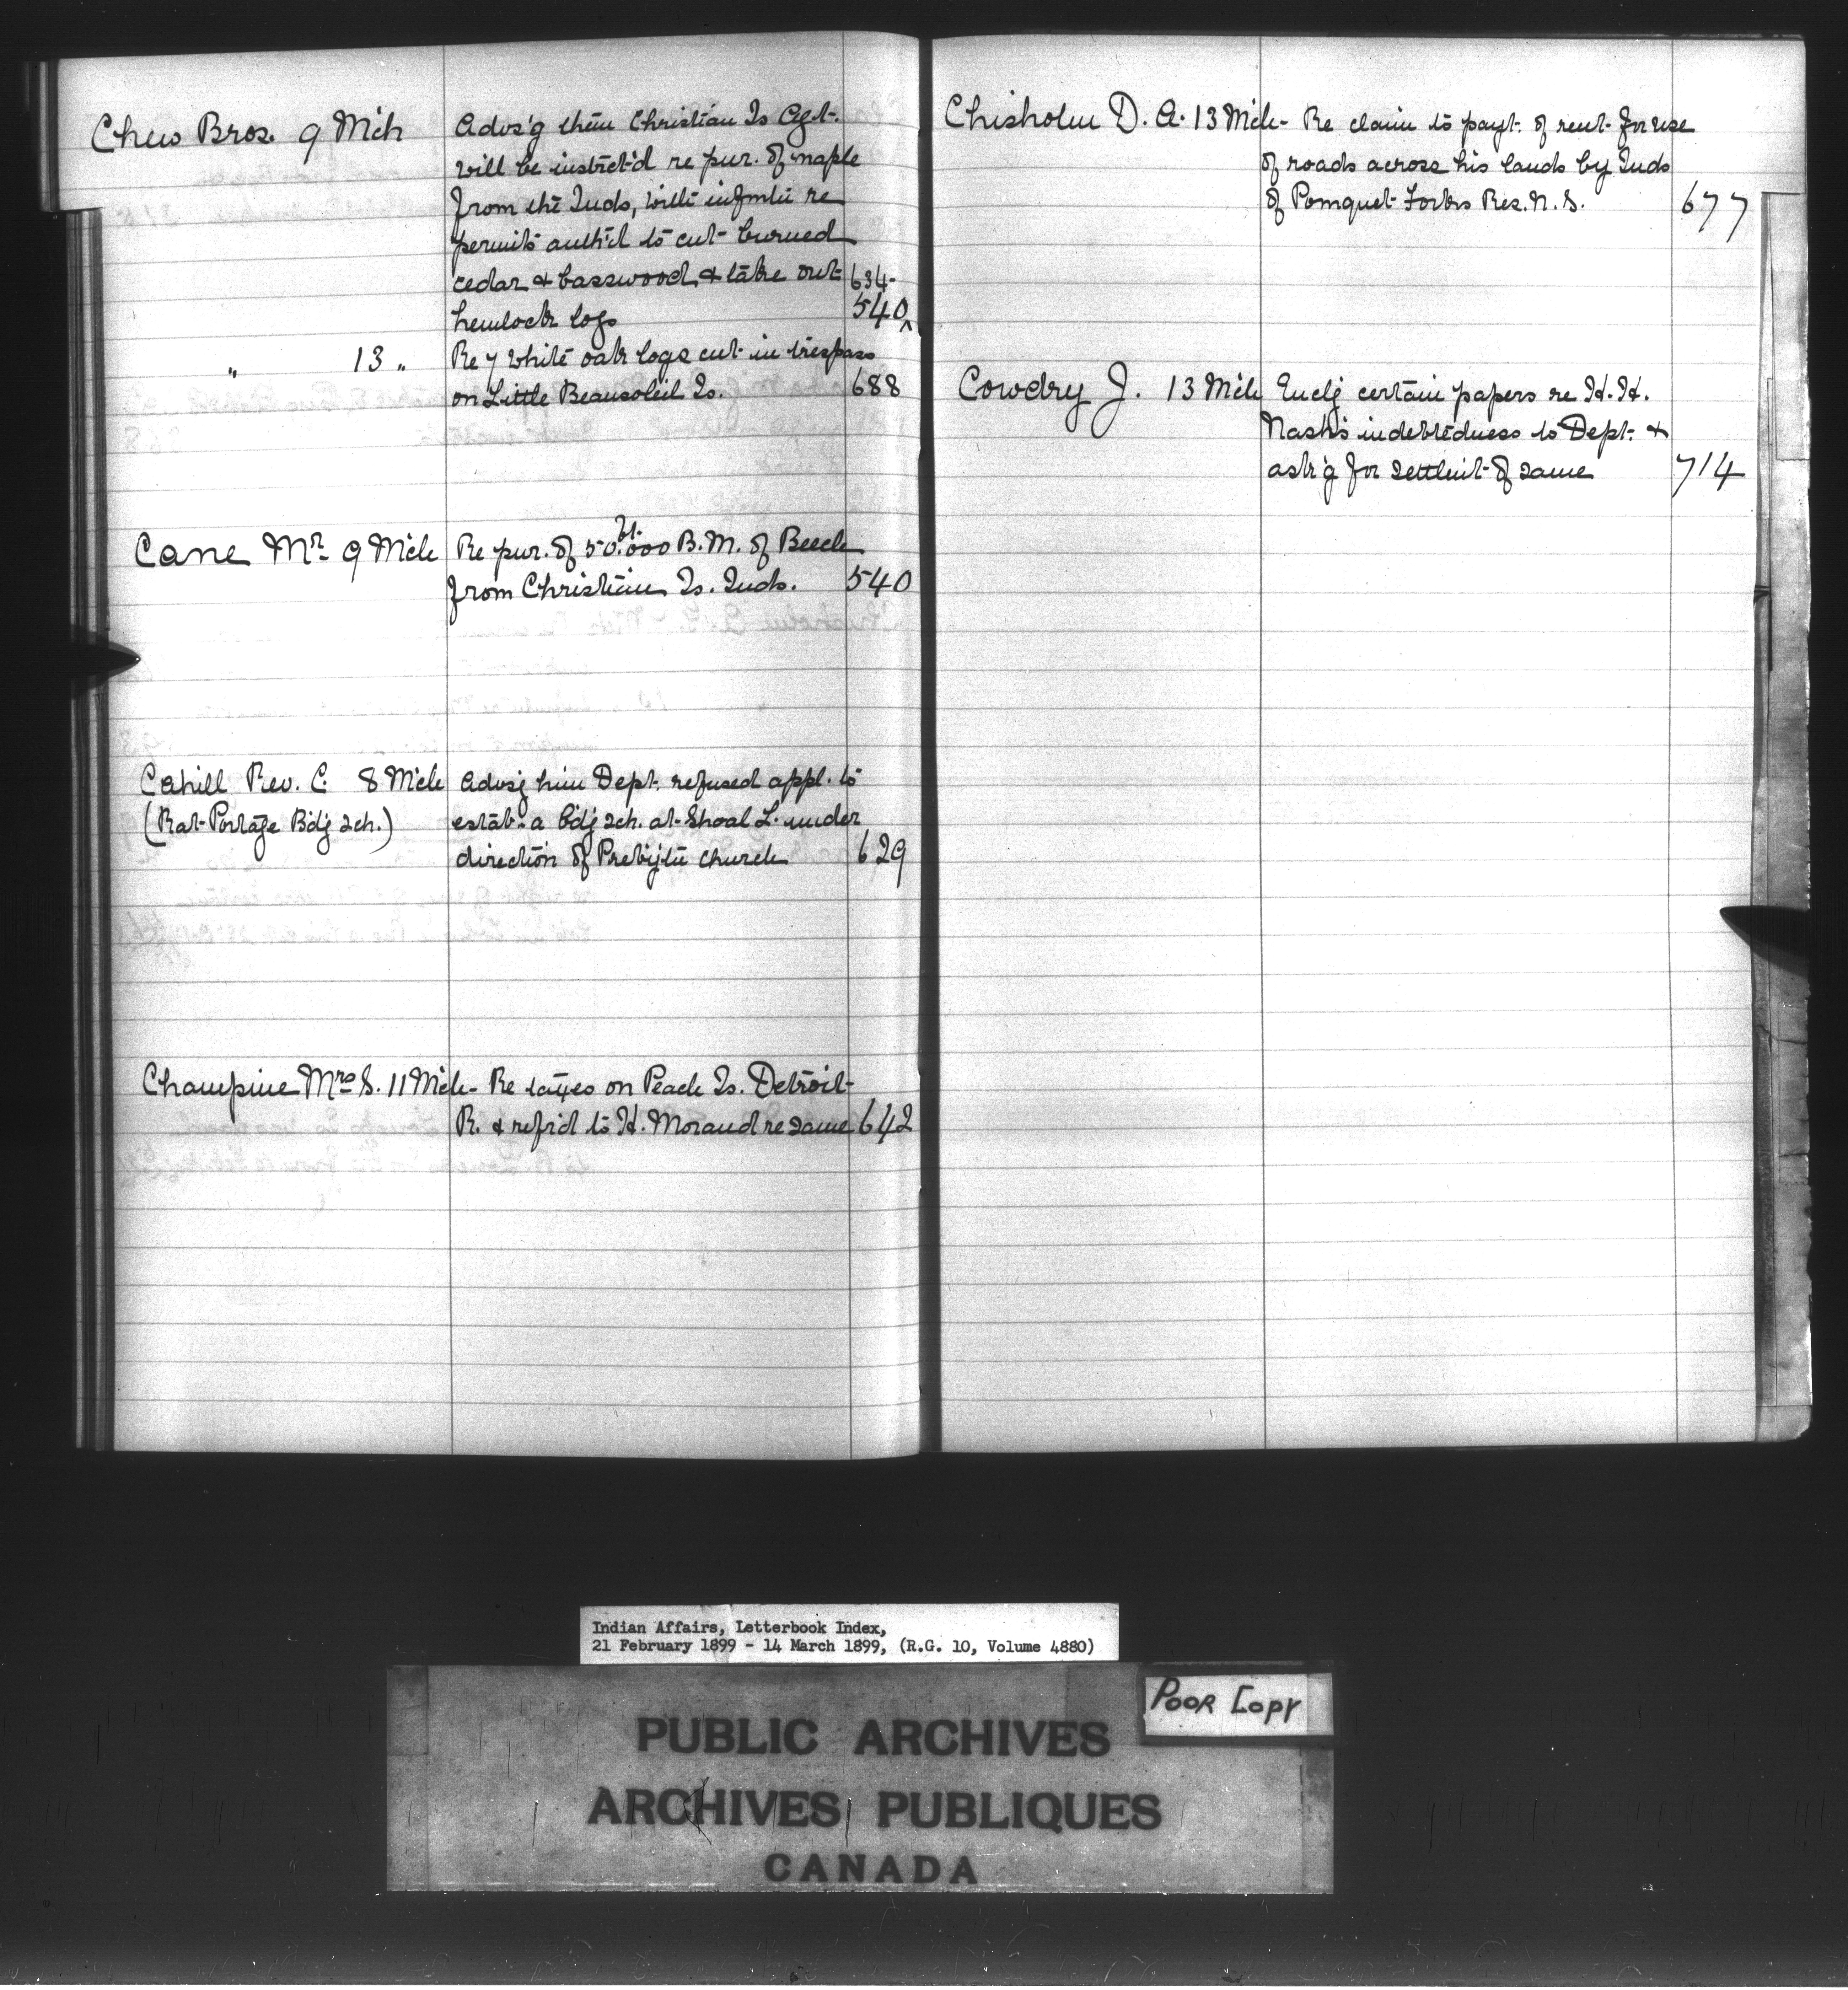 Chew Bros. 9 Mch Advs'g them Christian Is Agt.
will be instrct'd re pur. of maple
from the Inds, with infmtn re
permits auth'd to cut burned
cedar & basswood & take out 634-
hemlock logs 540^
" 13 " Re 7 white oak logs cut in trespass
on Little Beausoleil Is. 688
Cane Mr. 9 Mch Re pur. of 50.000 ft. B.M. of Beech
from Christian Is. Inds. 540
Cahill Rev. C. 8 Mch Advsg him Dept. refused appl. to
(Rat Portage Bdg sch.) estab. a bdg sch. at Shoal L. under
direction of Presbytn church 629
Champine Mrs S. 11 Mch - Re taxes on Peach Is. Detroit
R. & refr'd to H. Morand re same 642
Chisholm D. A. 13 Mch - Re claim to payt. of rent for use
of roads across his lands by Inds
of Pomquet Forks Res. N. S. 677
Cowdry J. 13 Mch Enclg certain papers re H. H.
Nash's indebtedness to Dept. &
ask'g for settlmt of same 714
Indian Affairs, Letterbook Index,
21 February 1899 - 14 March 1899, (R.G. 10, Volume 4880)
POOR COPY
PUBLIC ARCHIVES
ARCHIVES PUBLIQUES
CANADA